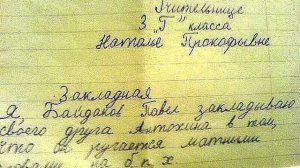 Учительнице
3 "Г" класса
Наталье Прокофьевне
Закладная
Я, Байдаков Павел закладываю
своего друга Алтохина в том,
что он ругается матными
словами на б п х